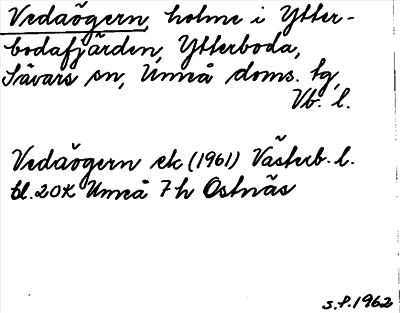 Vedaögern, holme i Ytter-
bodafjärden, Ytterboda,
Sävars sn, Umeå doms. tg,
Vb. l.
Vedaögern ek (1961) Västerb. l.
bl. 20K Umeå 7h Ostnäs
s.f. 1962